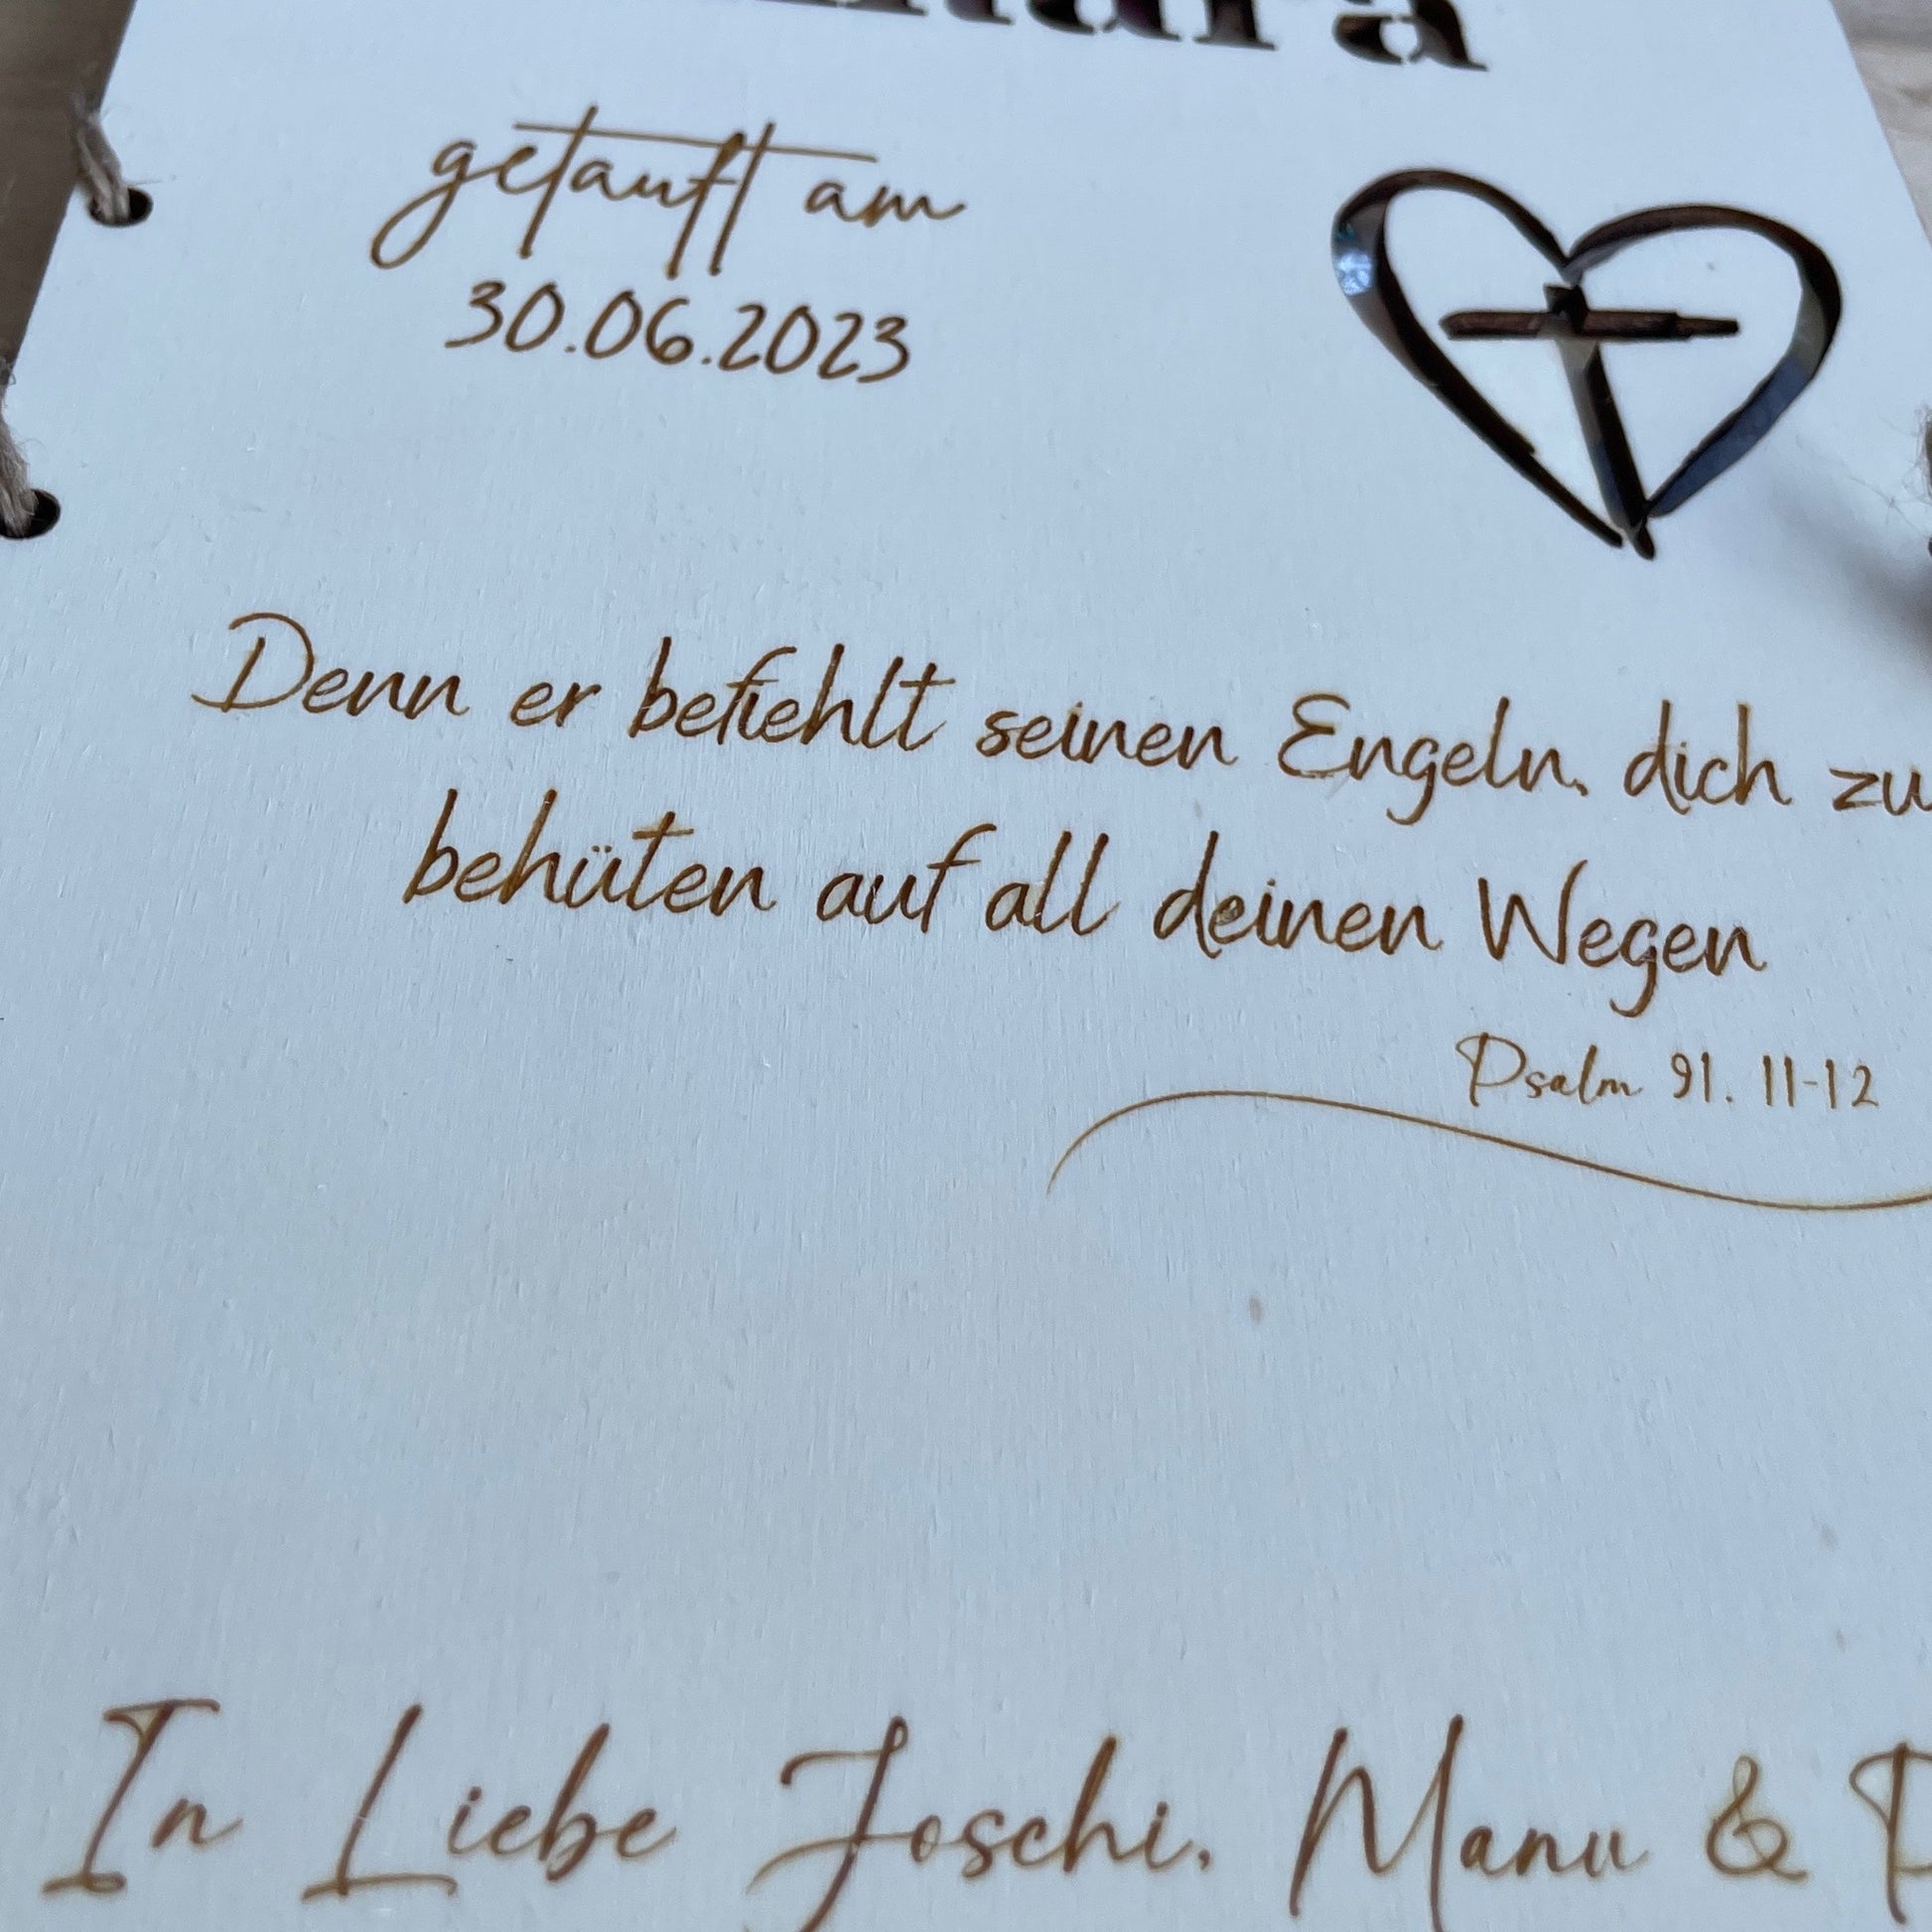 getauft am
30.06.2023
Denn er befiehlt seinen Engeln, dich zu
behüten auf all deinen Wegen
Psalm 91. 11-12
In Liebe Joschi, Manu &